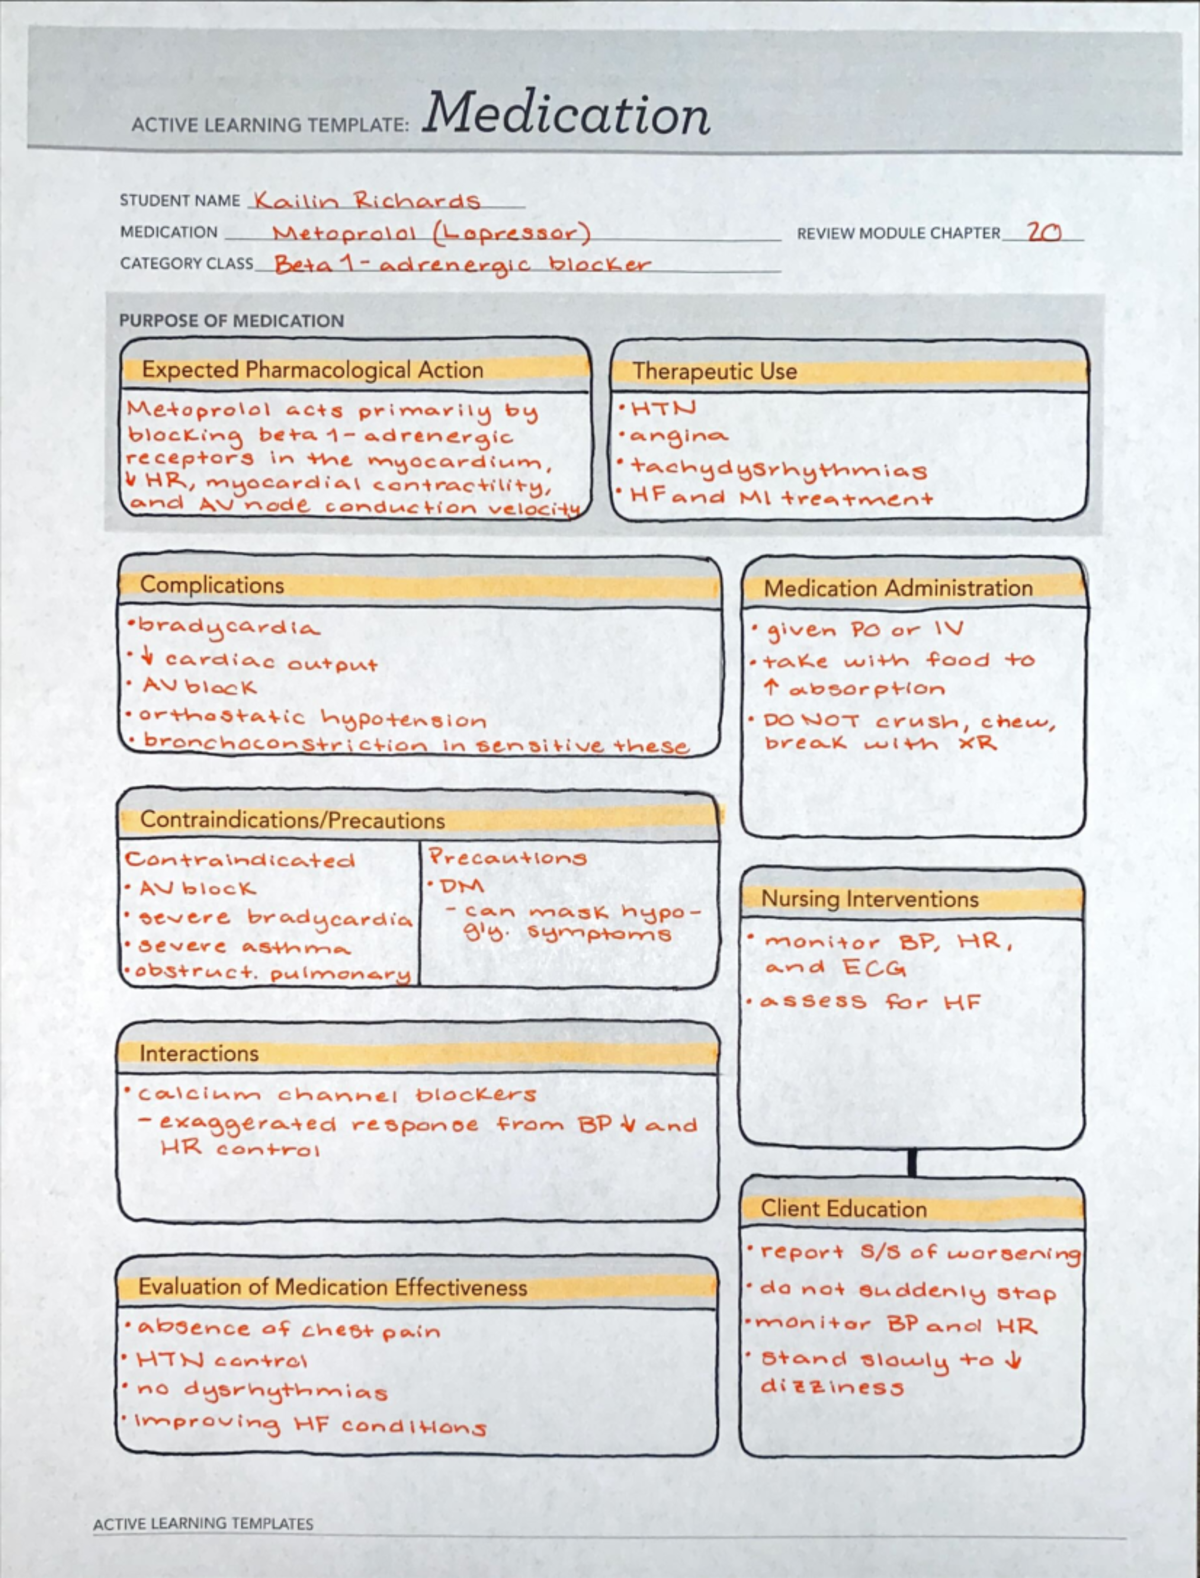 ACTIVE LEARNING TEMPLATE: Medication
STUDENT NAME Kailin Richards
MEDICATION Metoprolol (Lopressor)
REVIEW MODULE CHAPTER 20
CATEGORY CLASS Beta 1-adrenergic blocker
PURPOSE OF MEDICATION
Expected Pharmacological Action
Metoprolol acts primarily by
blocking beta 1-adrenergic
receptors in the myocardium,
↓ HR, myocardial contractility,
and AV node conduction velocity
Therapeutic Use
• HTN
• angina
• tachydysrhythmias
• HF and MI treatment
Complications
• bradycardia
• ↓ cardiac output
• AV block
• orthostatic hypotension
• bronchoconstriction in sensitive these
Medication Administration
• given PO or IV
• take with food to
↑ absorption
• DO NOT crush, chew,
break with XR
Contraindications/Precautions
Contraindicated
• AV block
• severe bradycardia
• severe asthma
• obstruct. pulmonary
Precautions
• DM
- can mask hypo-
gly. symptoms
Nursing Interventions
• monitor BP, HR,
and ECG
• assess for HF
Interactions
• calcium channel blockers
- exaggerated response from BP ↓ and
HR control
Client Education
• report S/S of worsening
• do not suddenly stop
• monitor BP and HR
• stand slowly to ↓
dizziness
Evaluation of Medication Effectiveness
• absence of chest pain
• HTN control
• no dysrhythmias
• improving HF conditions
ACTIVE LEARNING TEMPLATES